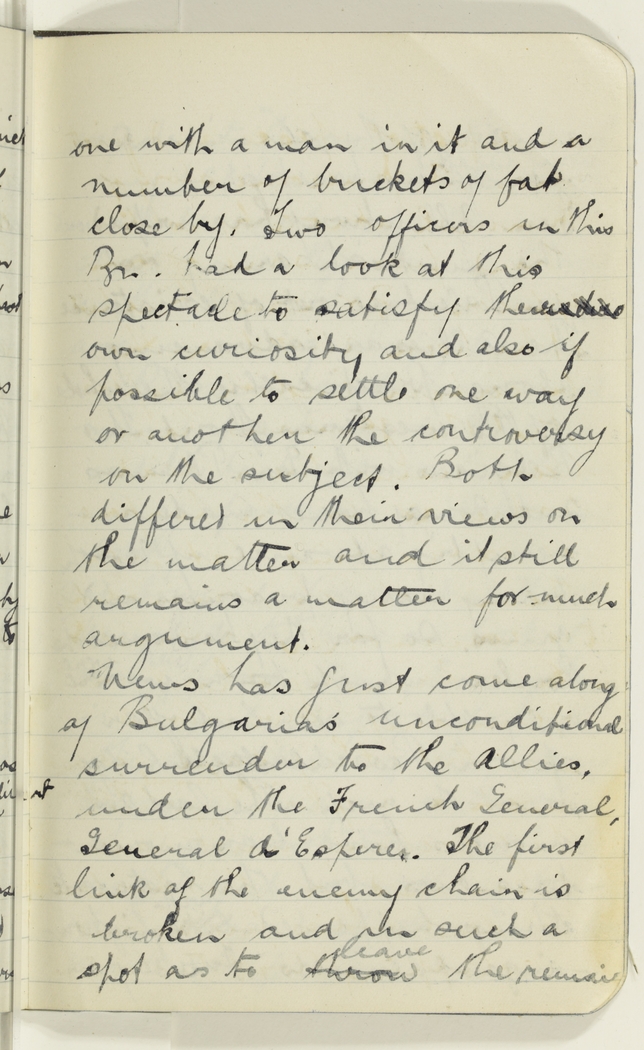 one with a man in it and a
number of buckets of fat
close by. Two officers in this
Bn. had a look at this
spectacle to satisfy their
own curiosity and also if
possible to settle one way
or another the controversy
on the subject. Both
differed in their views on
the matter and it still
remains a matter for much
argument.
News has just come along
of Bulgaria's unconditional
surrender to the Allies,
under the French General,
General d'Esperes. The first
link of the enemy chain is
broken and in such a
leave
spot as to throw the remain